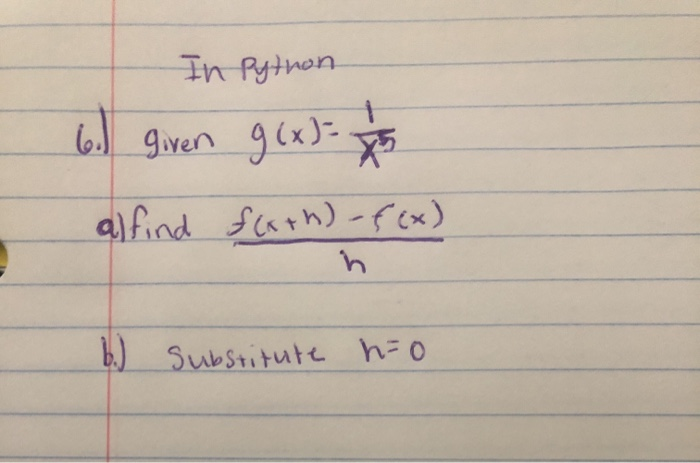 In Python
6.) given g(x) = 1/x^5
a) find f(x+h) - f(x) / h
b.) Substitute h=0